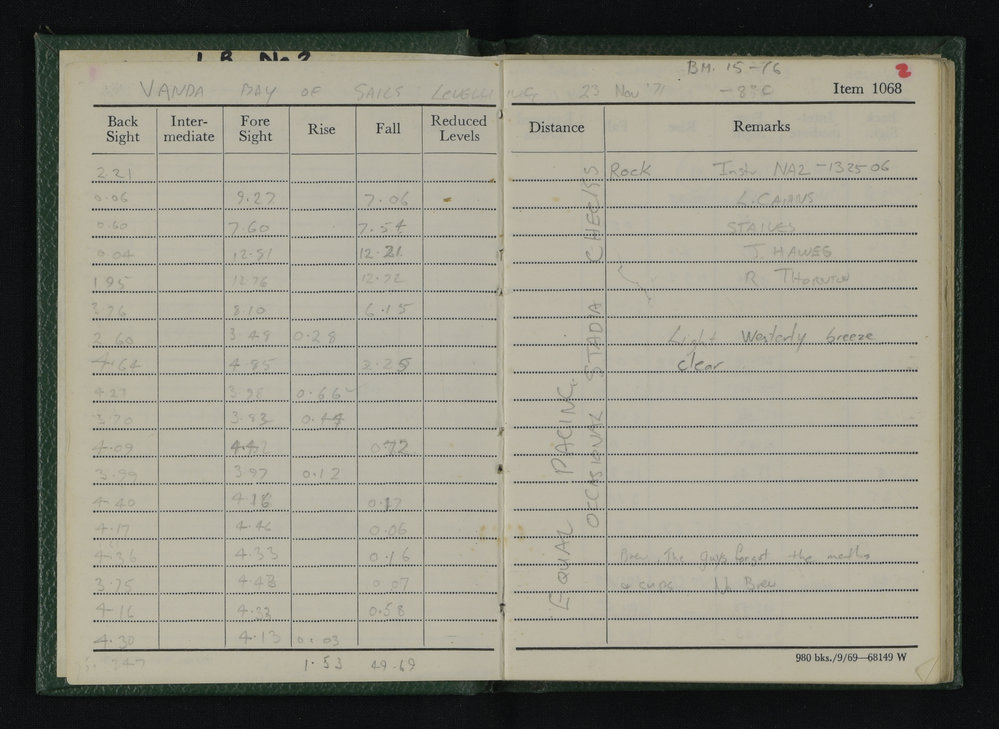 L.B. No 2
VANDA BAY OF SAILS LEVELLING 23 Nov '71 -8°C
BM. 15-76
2
Item 1068
Back Sight Inter-mediate Fore Sight Rise Fall Reduced Levels Distance Remarks
2.21 Rock Inst. NA2 -132506
0.06 9.27 7.06 L. CAIRNS
0.60 7.60 7.54 STAVES
0.04 12.81 12.21 J. HAWES
1.95 12.76 12.72 R. THORNTON
3.76 8.10 6.15
2.60 3.48 0.28 Light Westerly breeze
4.64 4.85 2.25 clear
4.27 3.98 0.66
3.70 3.83 0.44
4.09 4.42 0.72
3.99 3.97 0.12
4.40 4.16 0.17
4.17 4.46 0.06
4.36 4.33 0.16 Brew. The guys forgot the meths
3.75 4.43 0.07 & cups. No Brew
4.16 4.33 0.58
4.30 4.13 0.03
1.53 49.69
EQUAL PACING.
OCCASIONAL STADA CHECKS
980 bks./9/69—68149 W